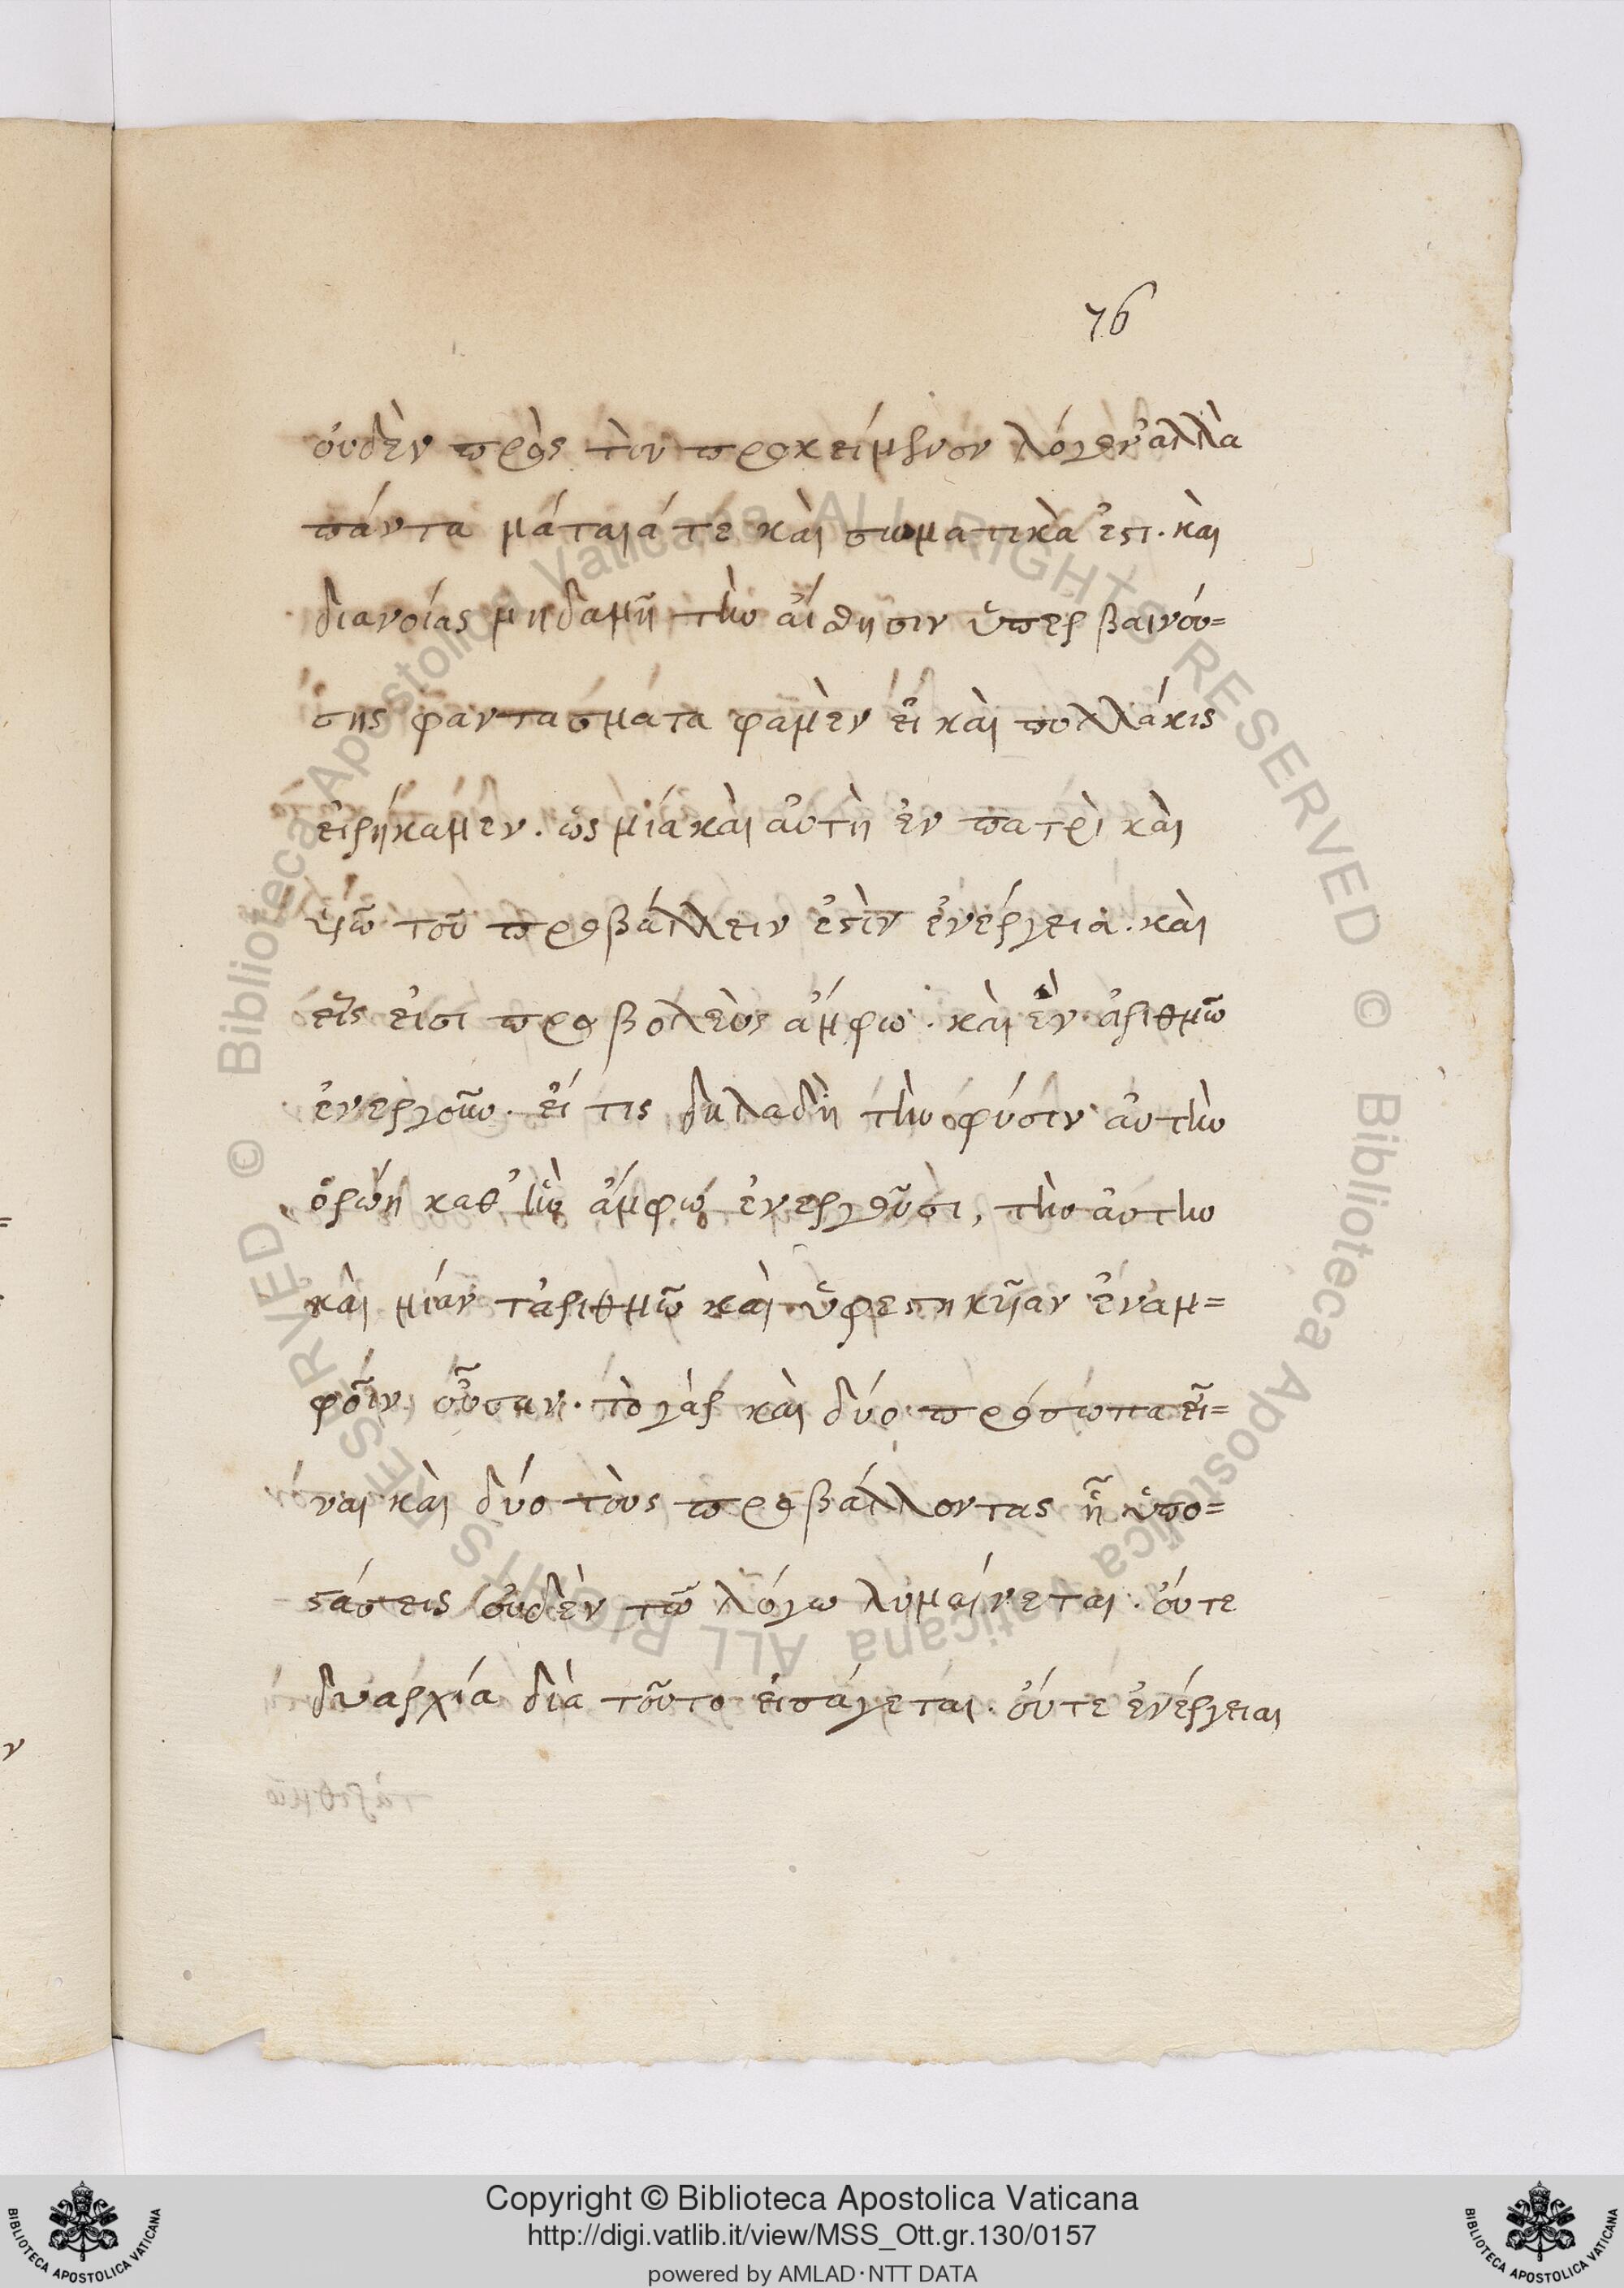 76
οὐδὲν πρὸς τὸν προκείμενον λόγον ἀλλὰ
πάντα μάταιά τε καὶ σωματικὰ ἐστι· καὶ
διανοίας μηδαμῆ τὴν αἴσθησιν ὑπερβαινού=
σης φαντάσματα φαμὲν εἰ καὶ πολλάκις
εἰρήκαμεν. ὡς μία καὶ αὐτὴ ἐν πατρὶ καὶ
υἱῶ τοῦ προβάλλειν ἐστὶν ἐνέργεια. καὶ
εἷς εἰσι προβολεὺς ἄμφω. καὶ ἓν ἀριθμῶ
ἐνεργοῦν. εἴ τις δηλαδὴ τὴν φύσιν αὐτὴν
ὁρώη καθ' ἣν ἄμφω ἐνεργοῦσι, τὴν αὐτὴν
καὶ μίαν τἀριθμῶ καὶ ὑφεστηκῆαν ἐν ἀμ=
φοῖν οὖσαν. τὸ γὰρ καὶ δύο πρόσωπα εἶ=
ναι καὶ δύο τοὺς προβάλλοντας ἢ ὑπο=
στάσεις οὐδὲν τῶ λόγω λυμαίνεται. οὔτε
δυαρχία διὰ τοῦτο εἰσάγεται. οὔτε ἐνέργειαι
Copyright © Biblioteca Apostolica Vaticana
http://digi.vatlib.it/view/MSS_Ott.gr.130/0157
powered by AMLAD·NTT DATA
BIBLIOTECA APOSTOLICA VATICANA
BIBLIOTECA APOSTOLICA VATICANA
© Biblioteca Apostolica Vaticana ALL RIGHTS RESERVED © Biblioteca Apostolica Vaticana ALL RIGHTS RESERVED